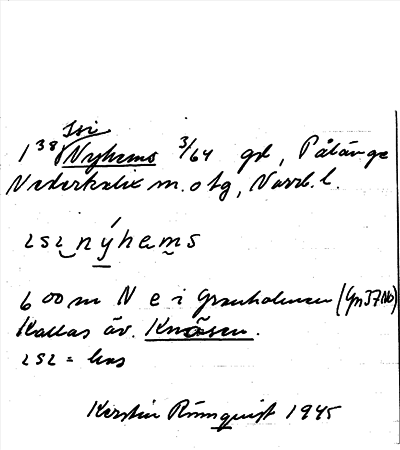 Isi
1³⁸ Nyhems 3/64 gd, Pålänge
Nederkalix m. o tg, Norrb. l.
ısı nýhems
600 m N e i Granholmen (Gn37Nb)
Kallas äv. Knösen.
ısı = hos
Kerstin Rönnquist 1945